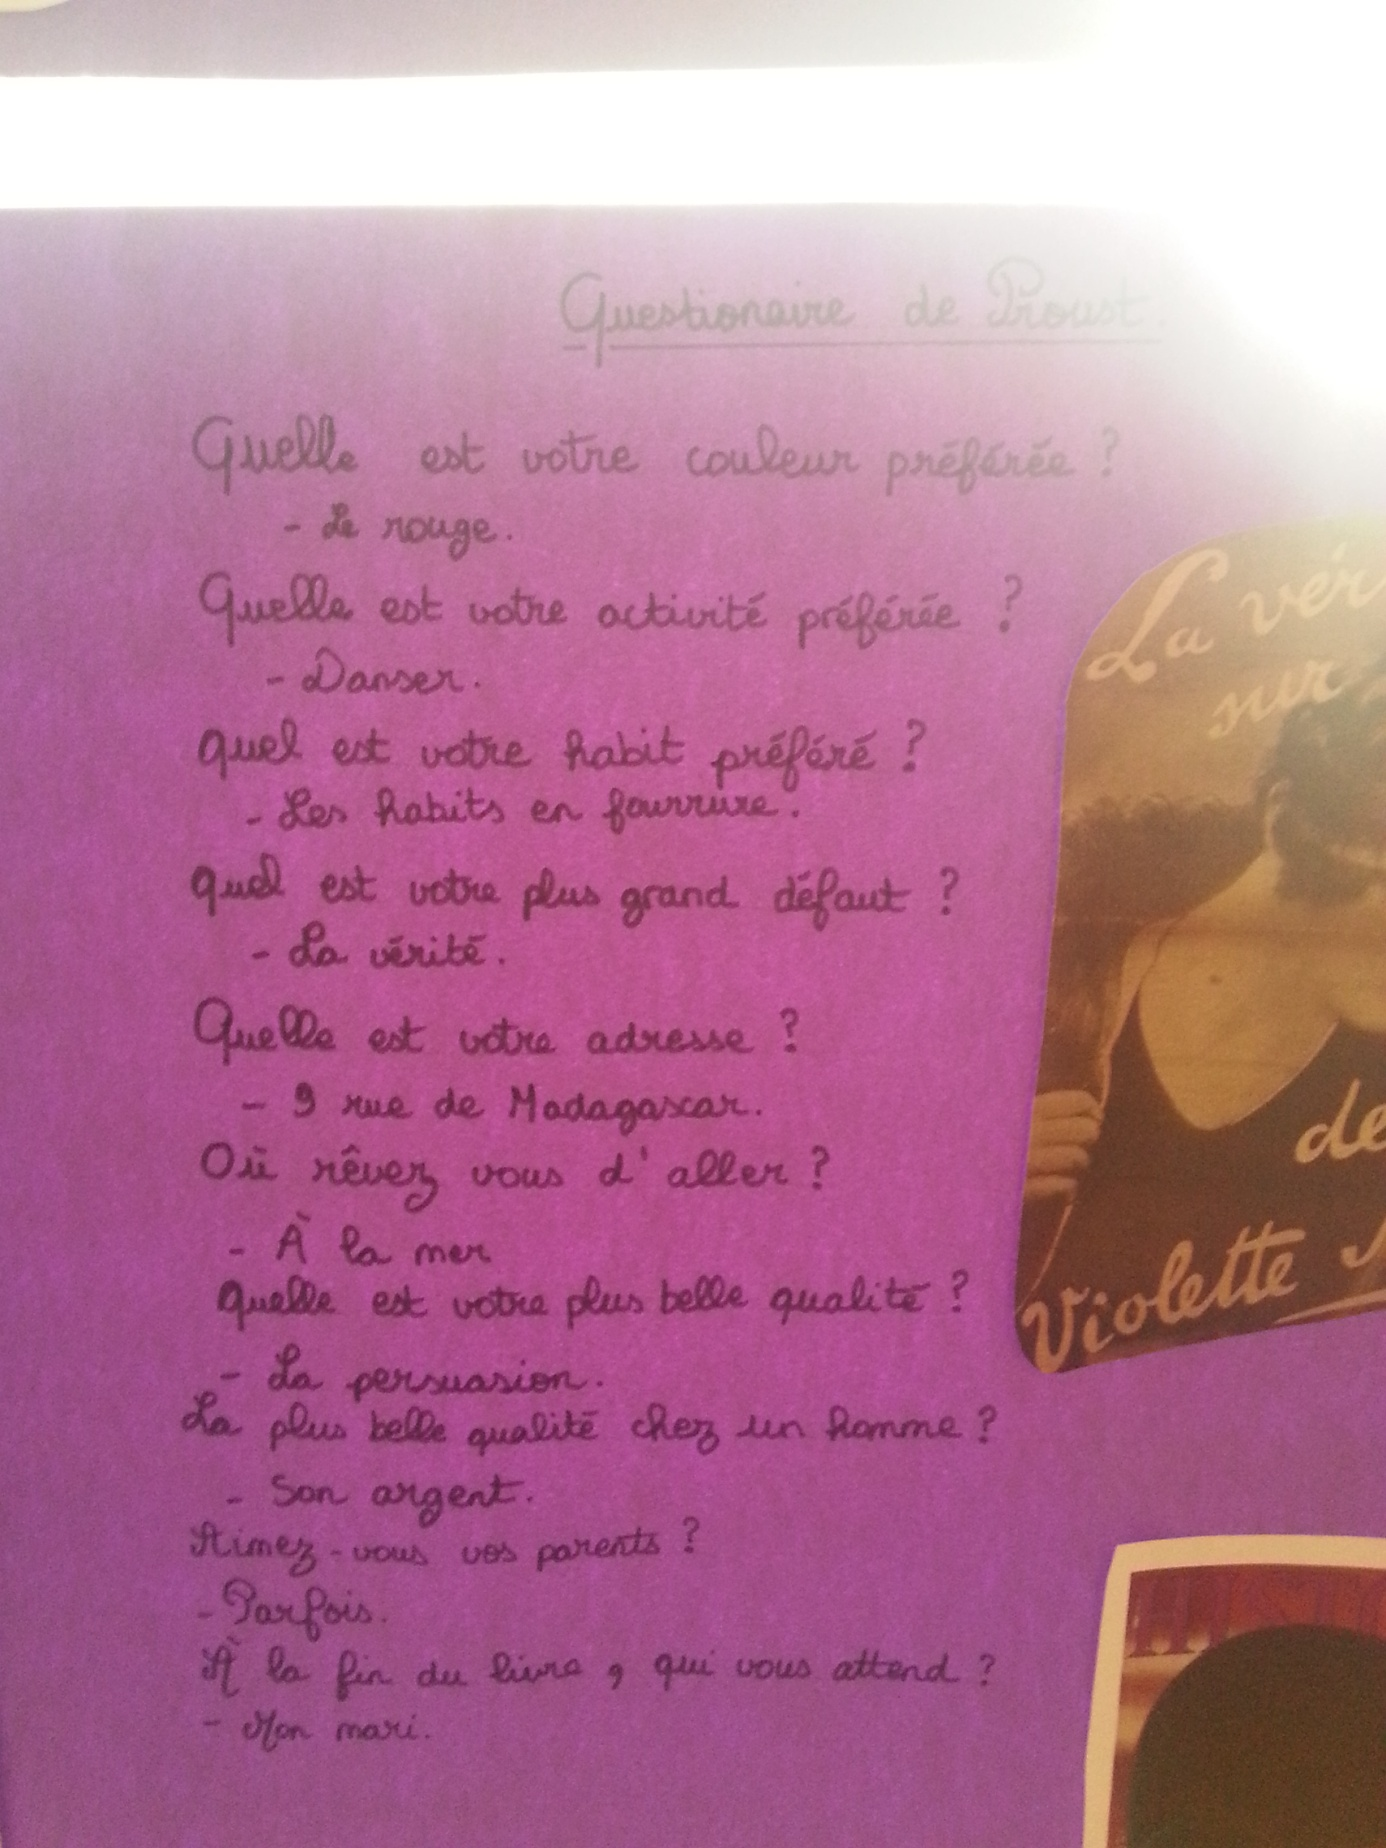 Questionaire de Proust.
Quelle est votre couleur préférée ?
- Le rouge.
Quelle est votre activité préférée ?
- Danser.
Quel est votre habit préféré ?
- Les habits en fourrure.
Quel est votre plus grand défaut ?
- La vérité.
Quelle est votre adresse ?
- 9 rue de Madagascar.
Où rêvez vous d'aller ?
- À la mer
Quelle est votre plus belle qualité ?
- La persuasion.
La plus belle qualité chez un homme ?
- Son argent.
Aimez-vous vos parents ?
- Parfois.
À la fin du livre, qui vous attend ?
- Mon mari.
La vér
sur
de
Violette